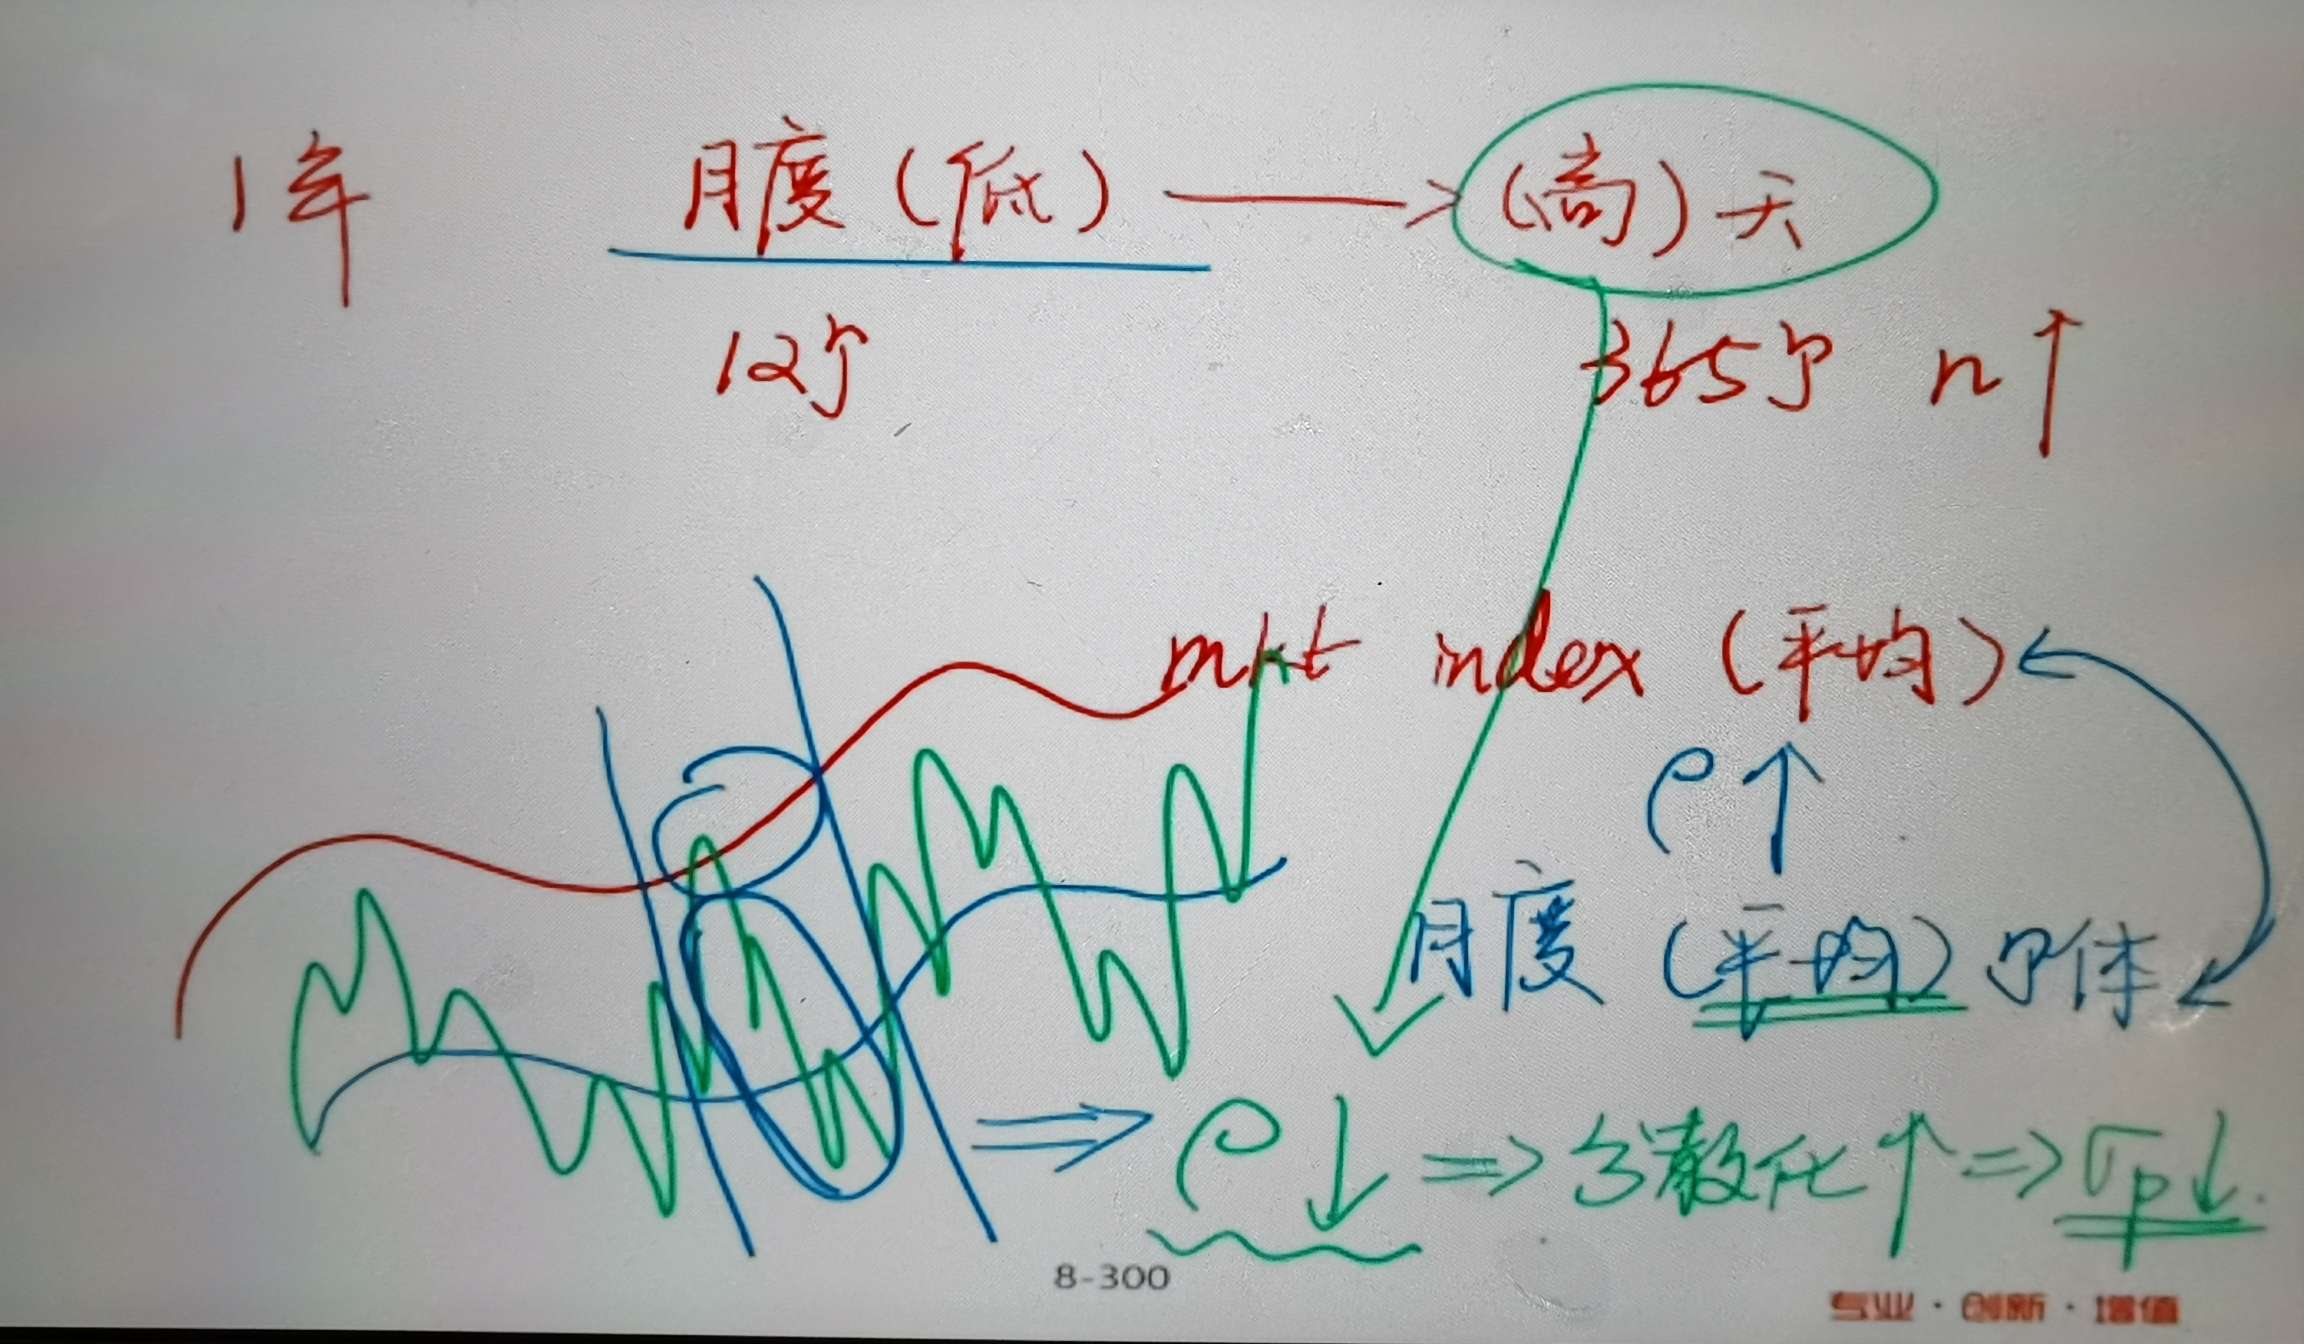 1年 月度（低）→（高）天
12个 365个 n↑
mkt index（平均）
ρ↑
月度（平均）个体
⇒ ρ↓ ⇒ 分散化↑ ⇒ σp↓
8-300
专业·创新·增值